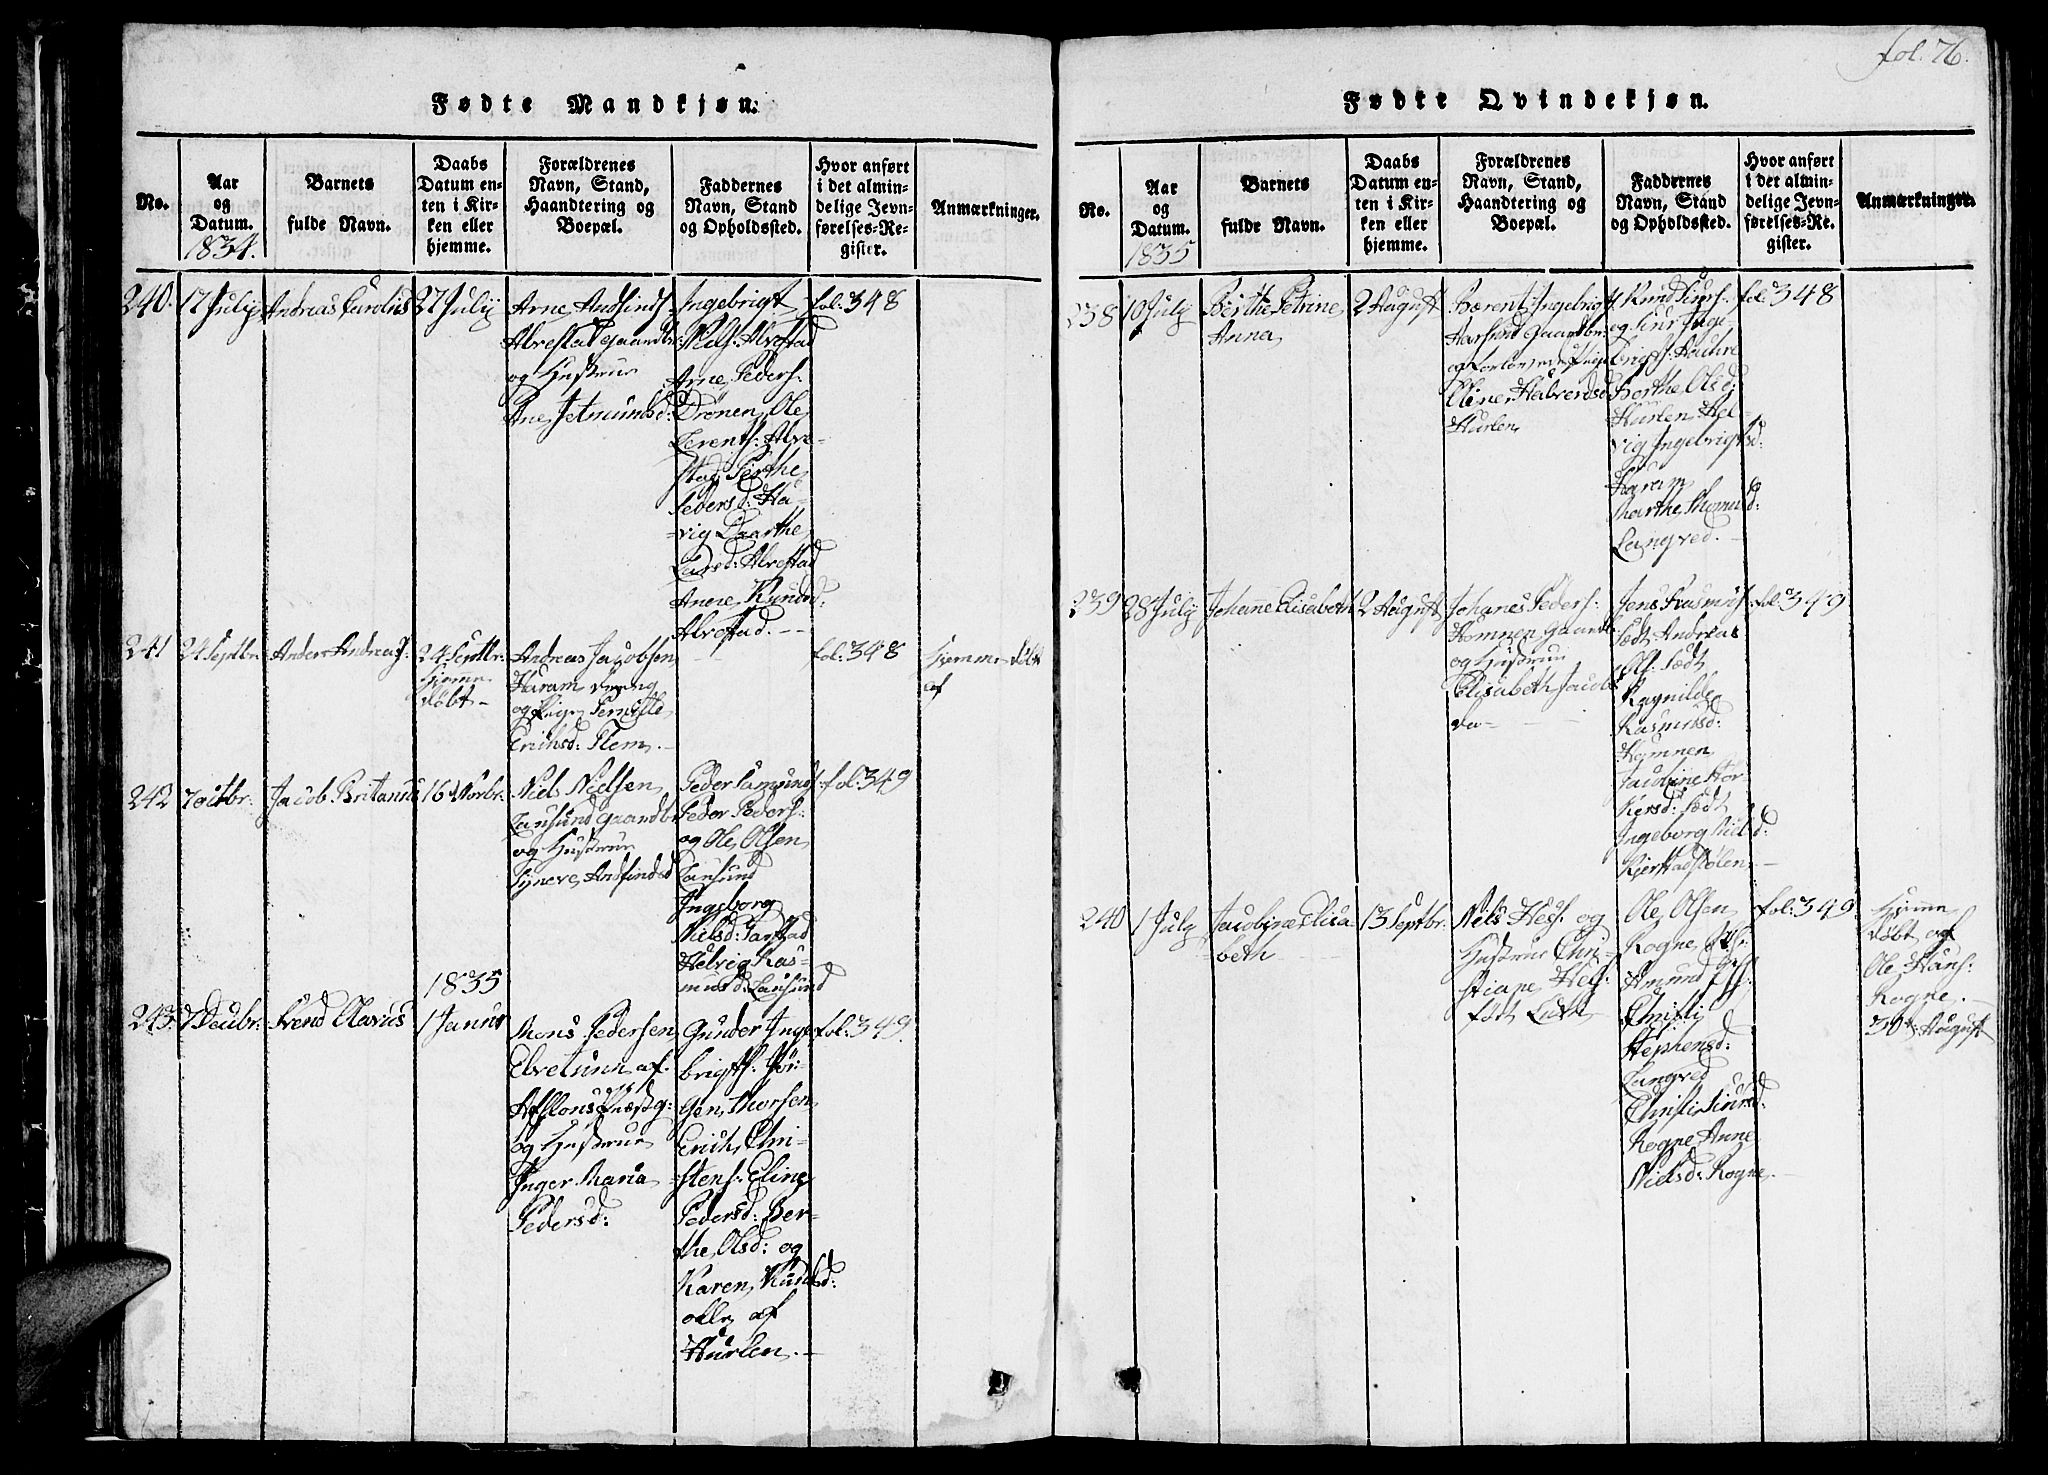 fol. 76.
Fødte Mandkjøn.
No.
Aar
og
Datum.
1834.
Barnets
fulde Navn.
Daabs
Datum en-
ten i Kir-
ken eller
hjemme.
Forældrenes
Navn, Stand,
Haandtering og
Boepæl.
Faddernes
Navn, Stand
og Opholdssted.
Hvor anført
i det almin-
delige Jevn-
førelses-Re-
gister.
Anmærkninger.
240.
17 Julij
Andreas Carolus
27 Julij
Arne Andfinds:
Alvestad gaardbr:
og Hustrue
Ane Jetmunds:
Ingebrigt
Niels: Alvestad
Arne Peders:
Drönen, Ole
Lerents: Alve-
stad Berthe
Pedersd: Ha-
vig Daarthe
Larsd: Alvestad
Anne Knudsd:
Alvestad. --
fol: 348
241
24 Septbr:
Anders Andreas
24 Septbr:
hjemme
døbt -
Andreas Jacobsen
Haram dreng
og Pige Pernille
Erichsd: Flem. -
fol: 348
hjemme døbt
af
242
7 Octbr:
Jacob Britanus
16 Novbr:
Niels Nielsen
Longund gaardbr
og Hustrue
Syneve Andfindsd
Peder Samunds:
Peder Peders:
og Ole Olsen
Ingeborg
Nielsd:
Helvig Ras-
musd:
fol: 349
1835
243.
7 Decbr:
Svend Olavus
1 Januar
Mons Pedersen
Elvetunn af
og Hustrue
Inger Maria
Pedersd:
Gunder Inge
brigts: Jör-
gen Thorsen
Erich Chri-
stens: Eline
Pedersd: Ber-
the Olsd: og
Karen Knudsd:
alle af
Hurlen. -
fol: 349.
Fødte Qvindekjøn.
No.
Aar
og
Datum.
1835
Barnets
fulde Navn.
Daabs
Datum en-
ten i Kir-
ken eller
hjemme.
Forældrenes
Navn, Stand,
Haandtering og
Boepæl.
Faddernes
Navn, Stand
og Opholdssted.
Hvor anført
i det almin-
delige Jevn-
førelses-Re-
gister.
Anmærkninger.
238
10 July
Berthe Petrine
Anna
2 August
Bærent Ingebrigt
Gaardbr:
Hurlen
Knud Sivrs:
og Sivr Inge
brigts: Haukre
Berthe Olsd:
Hurlen Hel-
vig Ingebrigtsd:
Haram
Marthe
Langved. -
fol: 348
239
28 July
Johanne Elisabeth
2 August
Johanes Peders:
Hamnen gaardb:
og Hustrue
Elisabeth Jacobs
da -
Jens Frasmus:
Sædt Andreas
Ols: Sædt
Ragnilde
Rasmusd:
Hamnen
Jacobine
Kersd: Sædt
Ingeborg Nielsd:
Kjerstadstølen. -
fol: 349
240
1 July
Jacobine Elisa-
beth
13 Septbr:
Niels Hess: og
Hustrue Chri-
stiane Hes:
født
Ole Olsen
Rogne
Amund
Christi
Stephensd:
Langved
Christi Sivrsd:
Rogne Anne
Nielsd: Rogne. -
fol: 349
hjemme
døbt af
Ole Hans:
Rogne. -
30te August